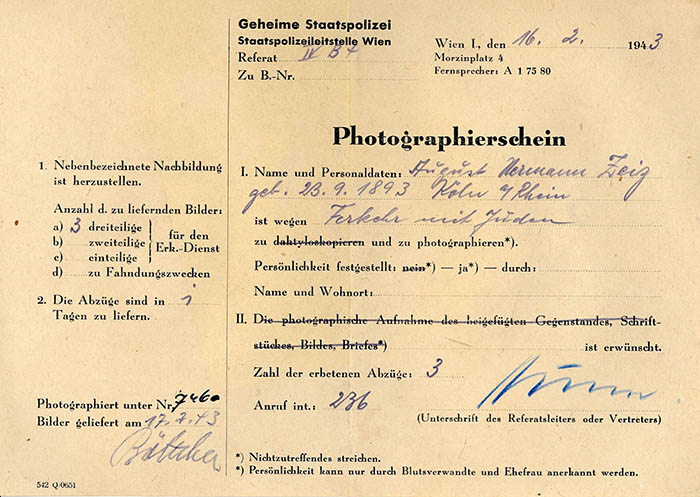 Geheime Staatspolizei
Staatspolizeileitstelle Wien
Referat IV B4
Zu B.-Nr.
Wien I., den 16. 2. 1943
Morzinplatz 4
Fernsprecher: A 1 75 80
Photographierschein
1. Nebenbezeichnete Nachbildung
ist herzustellen.
Anzahl d. zu liefernden Bilder:
a) 3 dreiteilige
b) zweiteilige
c) einteilige
für den
Erk.-Dienst
d) zu Fahndungszwecken
2. Die Abzüge sind in 1
Tagen zu liefern.
Photographiert unter Nr. 7460
Bilder geliefert am 17.2.43
Böttcher
I. Name und Personaldaten: August Hermann Zeiz
geb. 23.9.1893 Köln a/Rhein
ist wegen Verkehr mit Juden
zu daktyloskopieren und zu photographieren*).
Persönlichkeit festgestellt: nein*) — ja*) — durch:
Name und Wohnort:
II. Die photographische Aufnahme des beigefügten Gegenstandes, Schrift-
stückes, Bildes, Briefes*) ist erwünscht.
Zahl der erbetenen Abzüge: 3
Anruf int.: 236
(Unterschrift des Referatsleiters oder Vertreters)
*) Nichtzutreffendes streichen.
*) Persönlichkeit kann nur durch Blutsverwandte und Ehefrau anerkannt werden.
542 Q/0651